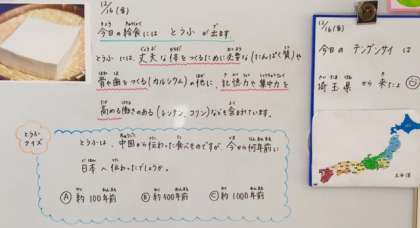 12/16(金)
今日の給食には とうふ が 出ます。
とうふ には、丈夫な体をつくるために必要な(たんぱく質)や
骨や歯をつくる(カルシウム)の他に、記憶力や集中力を
高める働きのある(レシチン、コリン)なども含まれています。
とうふ
クイズ
とうふは、中国から伝わった食べものですが、今から何年前に
日本へ伝わったでしょうか。
Ⓐ 約100年前 Ⓑ 約400年前 Ⓒ 約1000年前
12/16(金)
今日の テンサイ は
埼玉県 から 来たよ